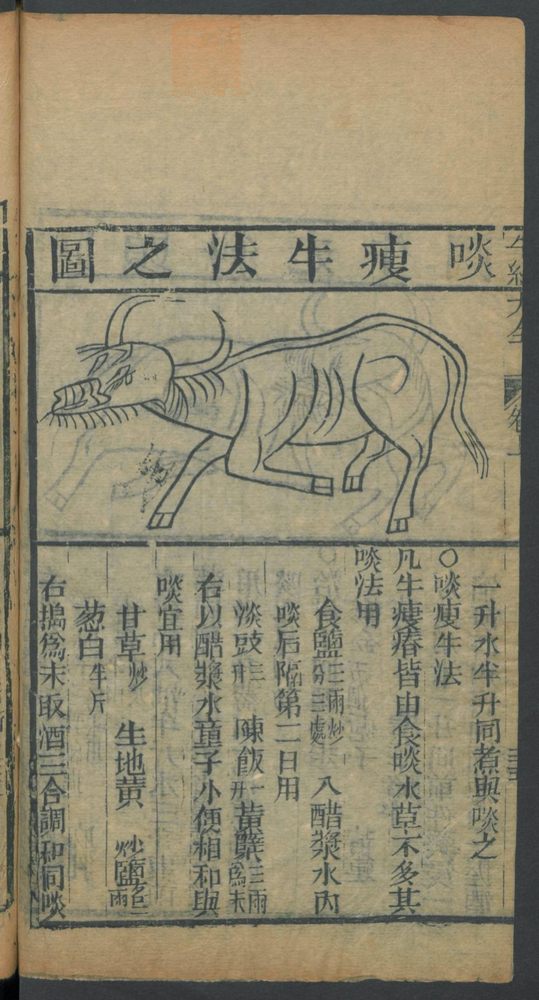 啖瘦牛法之圖
一升水半升同煮與啖之
○啖瘦牛法
凡牛瘦瘠皆由食啖水草不多其
啖法用
食鹽三兩炒分三處 入醋漿水內
啖后隔第二日用
淡豉三升 陳飯一升 黃蘗三兩為末
右以醋漿水童子小便相和與
啖宜用
甘草炒 生地黃 炒鹽各二兩
葱白半斤
右搗為末取酒三合調和同啖